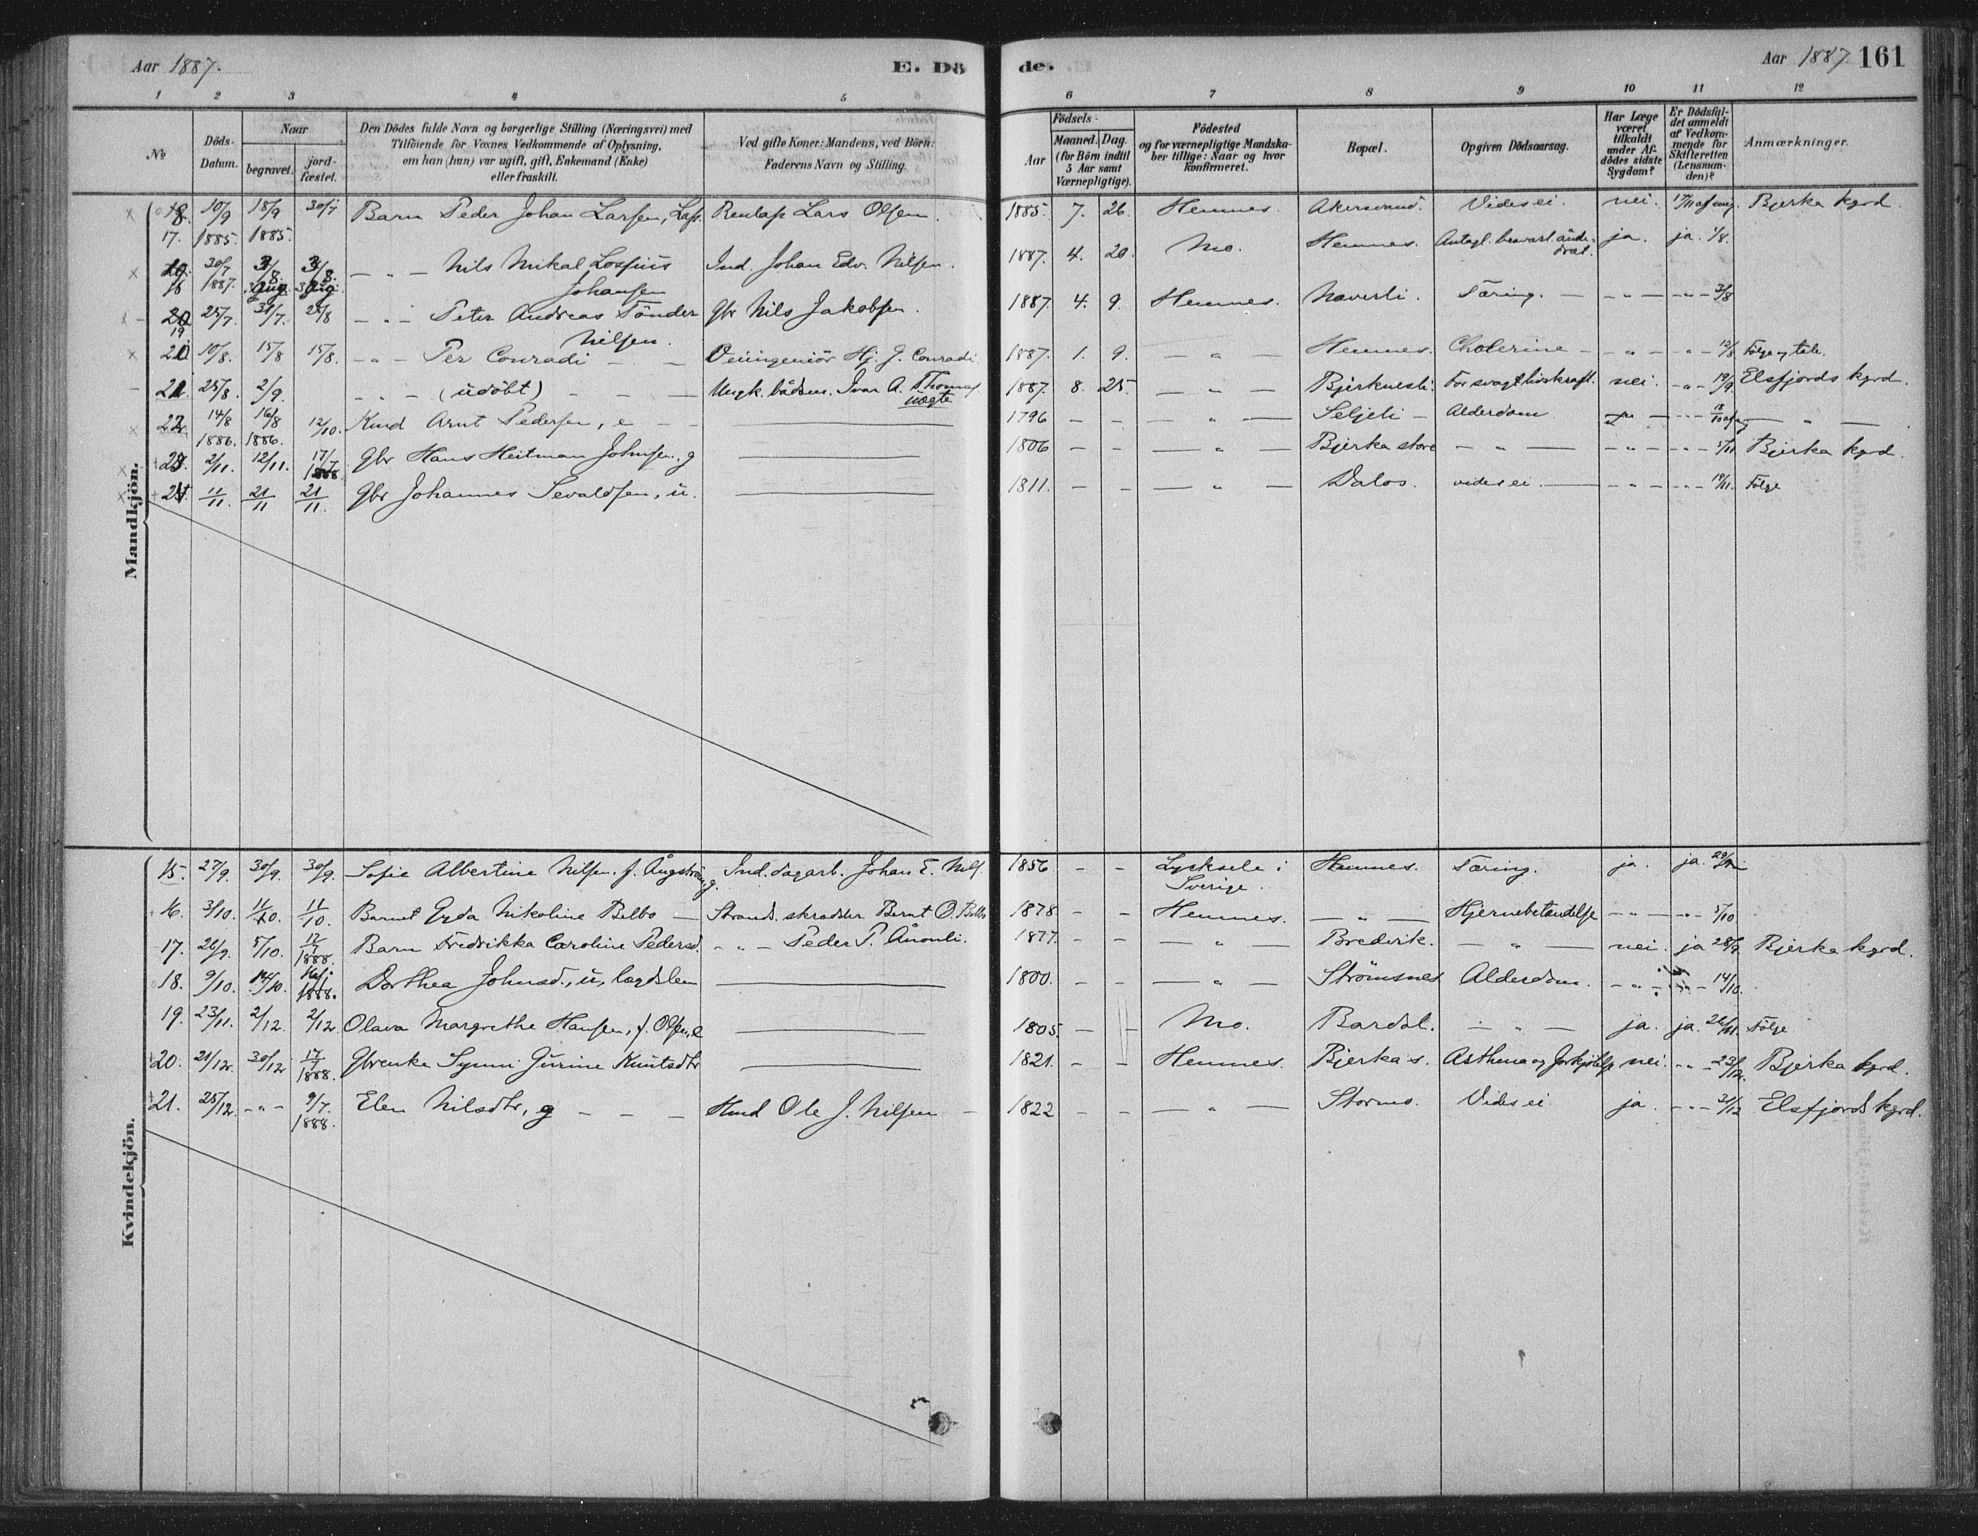 Aar 1887.
E. Döde.
Aar 1887.
161
1 2 3 4 5 6 7 8 9 10 11 12
No
Döds-Datum.
Naar
begravet.
jordfæstet.
Den Dödes fulde Navn og borgerlige Stilling (Næringsvei) med
Tilföiende for Voxnes Vedkommende af Oplysning,
om han (hun) var ugift, gift, Enkemand (Enke)
eller fraskilt.
Ved gifte Koner: Mandens, ved Börn:
Faderens Navn og Stilling.
Födsels-
Aar
Maaned. Dag.
(for Börn indtil
5 Aar samt
Værnepligtige).
Födested
og for værnepligtige Mandskaber
tillige: Naar og hvor
konfirmeret.
Bopæl.
Opgiven Dödsaarsag.
Har Læge
været
tilkaldt
under Afdödes
sidste
Sygdom?
Er Dödsfaldet
anmeldt
af Vedkommende
for
Skifteretten
(Lensmanden)?
Anmærkninger.
Mandkjön.
17. 10/9 1885. 18/9 1885. 30/7 Barn Peder Johan Larsen, Lap. Renlap Lars Olsen. 1885. 7. 26. Hemnes. Akersvand. Vides ei. nei. Bjerka kgrd.
18 30/7 1887. 3/8. 3 Aug. 3/8. 3 Aug. — „ — Nils Mikal Losfius Johansen Ind. Johan Edv. Nilsen. 1887. 4. 20. Mo. Hemnes. ja. ja. 1/8.
19 25/7. 31/7. 21/8 — „ — Peter Andreas Tönder Nilsen. Gbr Nils Jakobsen. 1887. 4. 9. Hemnes. Naverli. Tæring. — — „ — — „ — 2/8
20 10/8. 15/8 15/8. — „ — Per Conradi — — Veiingeniör Hj. J. Conradi 1887. 1. 9. — „ — Hemnes. Cholerine — — „ — — „ — 12/8 Fölge og tale.
21 25/8 2/9. „ — „ (udöbt) — — Ungk. bådsm. Ivar A. Thomas nægte 1887. 8. 25. — „ — Bjerknesli. For svagt livskraft. nei. — „ — 19/9. Elsfjords kgrd.
22 14/8 1886. 16/8 1886. 12/10. Kmd Arnt Pedersen, e — — 1796 — — — „ — Seljeli — Alderdom — „ —
23 2/11. 12/11. 17/7 1888. Gbr Hans Heitman Johnsen, g 1806 — — — „ — Bjerka store — „ — — „ — — „ — 5/11 Bjerka kgrd.
24 11/11. 21/11 21/11. Gbr Johannes Sevaldsen, u. 1811. — — — „ — Dalos. vides ei. — — „ — — „ — 18/11. Fölge
Kvindekjön.
15. 27/9. 30/9. 30/9. Sofie Albertine Nilsen f. Ångström g. Ind. dagarb. Johan E. Nils. 1856 — — Lycksele i Sverige. Hemnes. Tæring. ja. ja.
16. 3/10. 11/10. 11/10. Barnet Gyda Nikoline Belbo — Strands. skrædder Bernt O. Belbo 1878. — — Hemnes. — „ — Hjernebetændelse — „ — — „ — 5/10
17. 26/9. 5/10. 17/7 1888. Barn Fredrikka Caroline Pedersd. — „ — Peder P. Ånonli. 1877. — — — „ — Bredvik. — „ — nei. ja 28/9 Bjerka kgrd.
18. 9/10. 14/10. 1888. Dorthea Johnsd., u, lægdslem 1800. — — — „ — Strömsnes Alderdom. — „ — — „ — 14/10.
19. 23/11. 2/12. 2/12. Olava Margrethe Hansen, f. Olsen, e 1805. — — Mo. Bardal. — „ — ja. ja. 26/11. Fölge
20. 21/12. 30/12 17/7 1888. Gbrenke Synni Jurine Knutsdtr 1821. — — Hemnes. Bjerka s. Asthma og Forkjölelse nei. — „ — 23/12. Bjerka kgrd.
21. 25/12. — „ — 9/7. 1888. Elen Nilsdtr, g — — — Kmd Ole J. Nilsen — 1822 — — — „ — Stormo. Vides ei. ja. — „ — 31/12 Elsfjords kgrd.